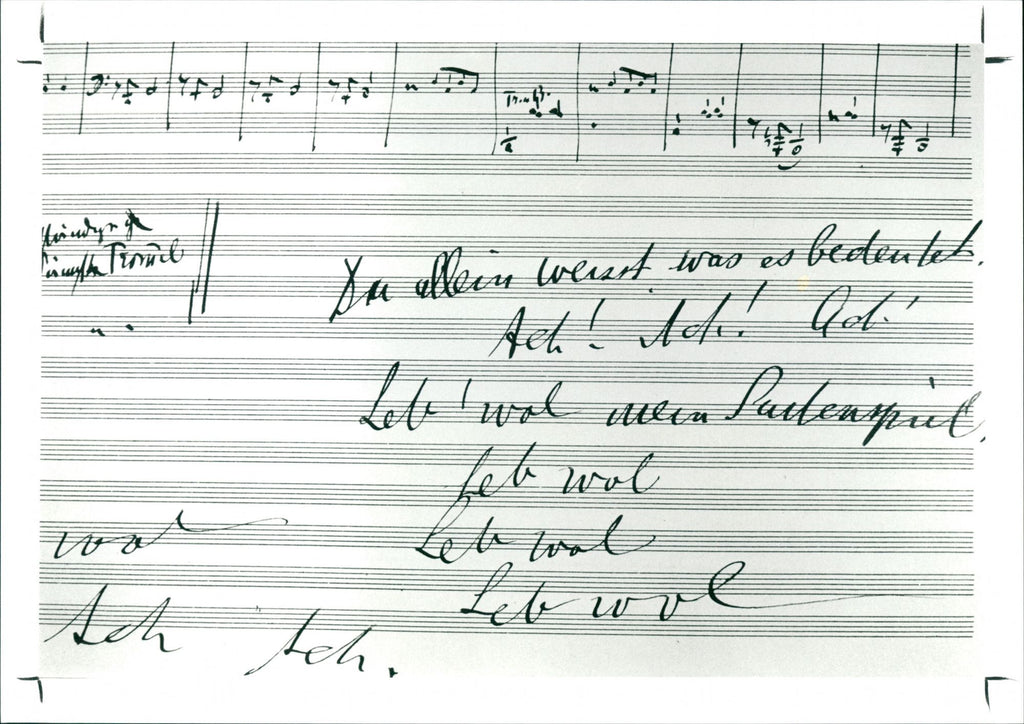 Du allein weisst was es bedeutet.
Ach! Ach! Ach!
Leb' wol mein Saitenspiel.
Leb wol
Leb wol
wol
Leb wol
Ach Ach.